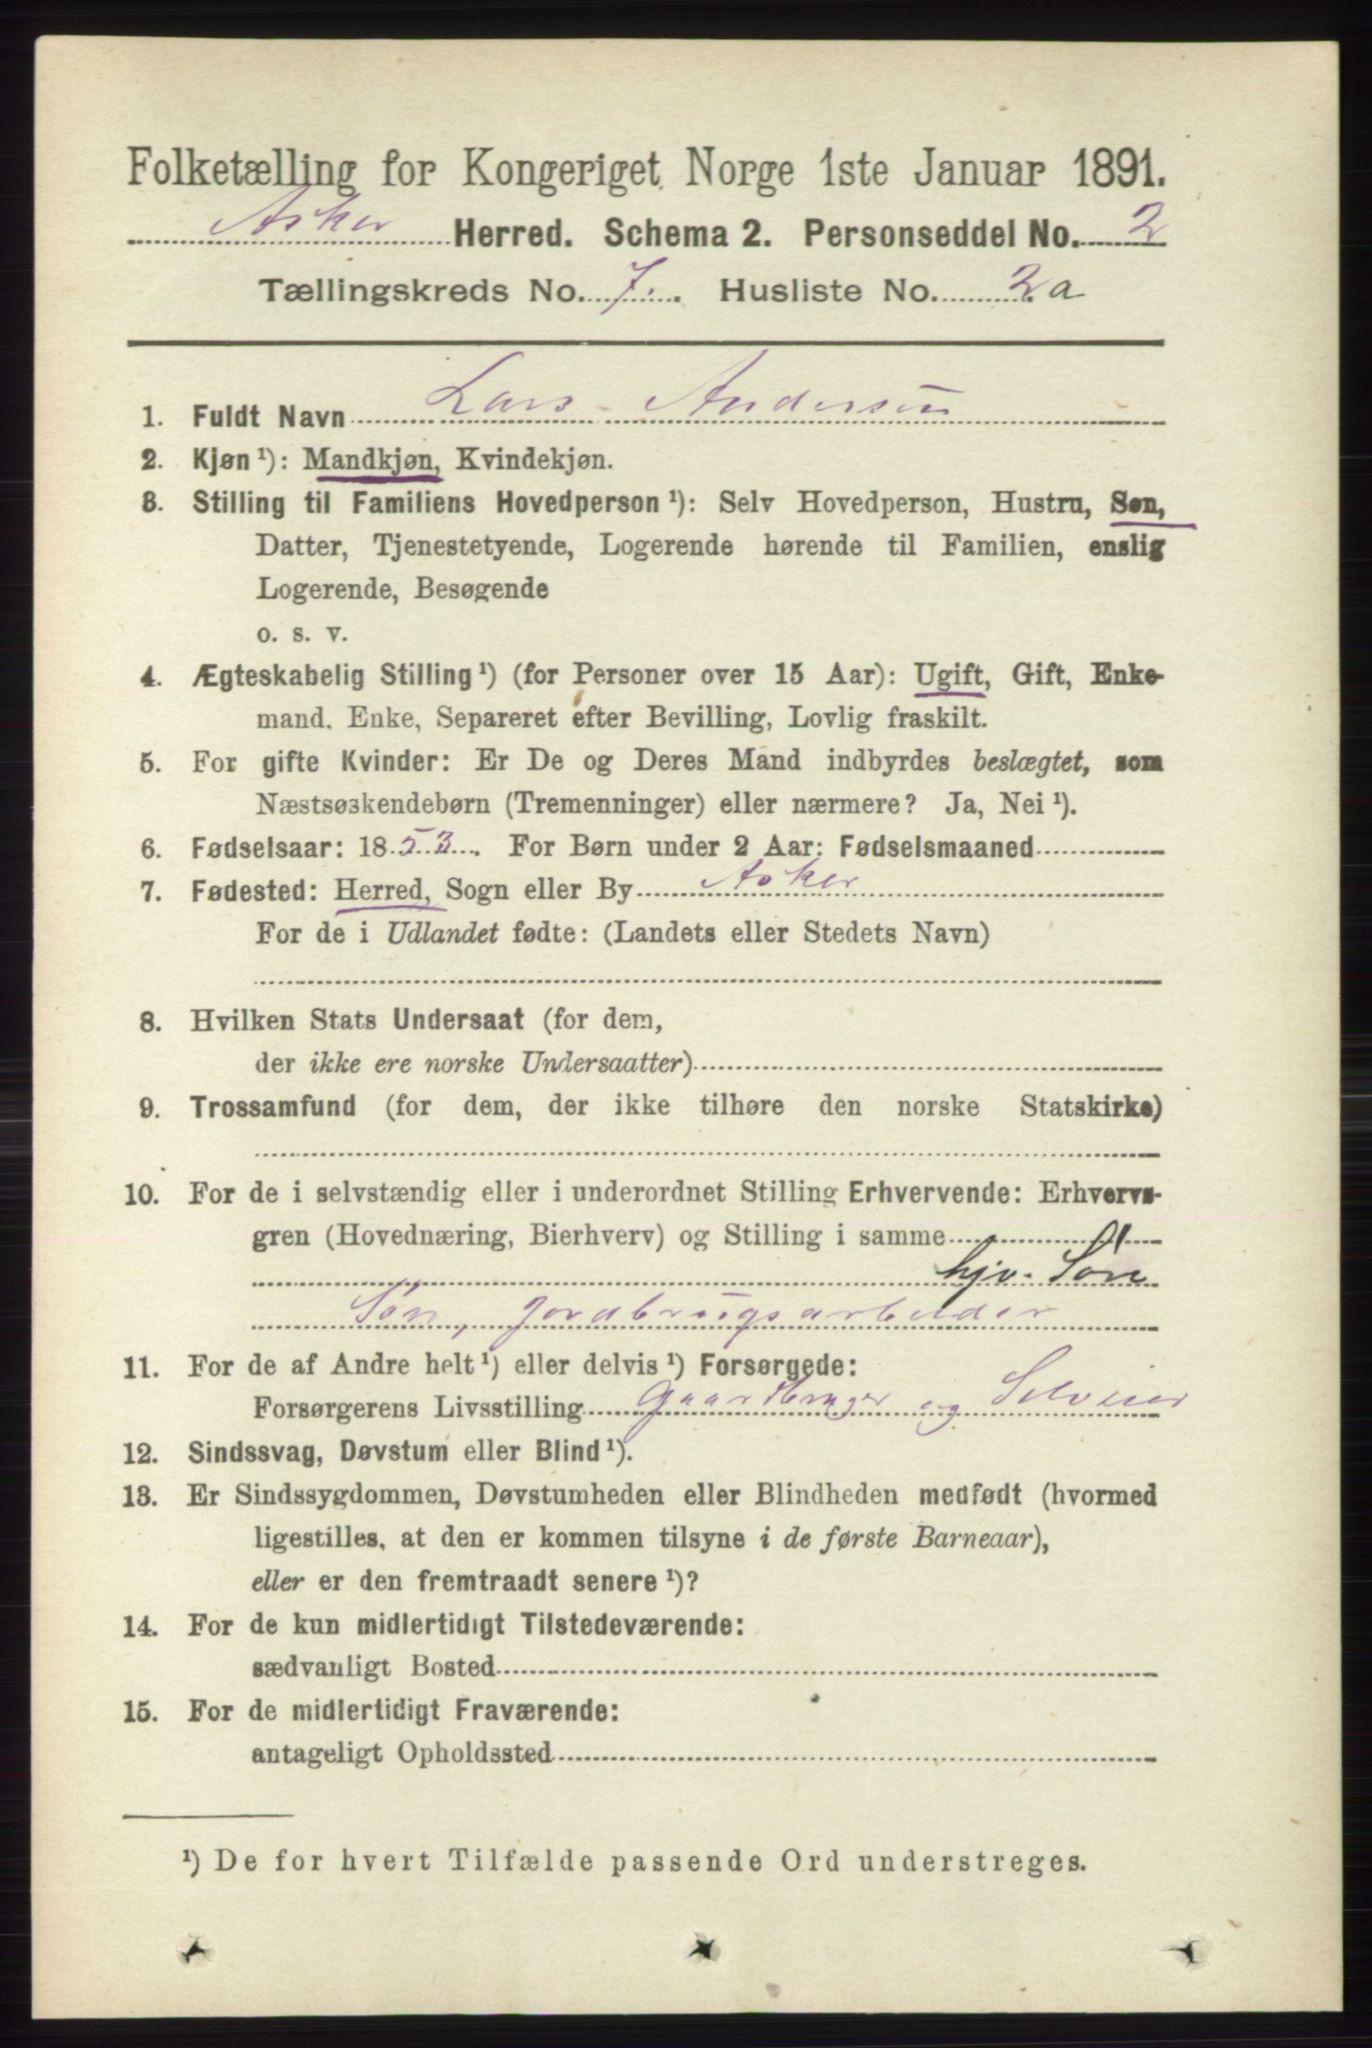 Folketælling for Kongeriget Norge 1ste Januar 1891.
Asker Herred. Schema 2. Personseddel No. 2
Tællingskreds No. 7. Husliste No. 2a
1. Fuldt Navn Lars Andersen
2. Kjøn ¹): Mandkjøn, Kvindekjøn.
3. Stilling til Familiens Hovedperson ¹): Selv Hovedperson, Hustru, Søn,
Datter, Tjenestetyende, Logerende hørende til Familien, enslig
Logerende, Besøgende
o. s. v.
4. Ægteskabelig Stilling ¹) (for Personer over 15 Aar): Ugift, Gift, Enke-
mand, Enke, Separeret efter Bevilling, Lovlig fraskilt.
5. For gifte Kvinder: Er De og Deres Mand indbyrdes beslægtet, som
Næstsøskendebørn (Tremenninger) eller nærmere? Ja, Nei ¹).
6. Fødselsaar: 1853. For Børn under 2 Aar: Fødselsmaaned
7. Fødested: Herred, Sogn eller By Asker
For de i Udlandet fødte: (Landets eller Stedets Navn)
8. Hvilken Stats Undersaat (for dem,
der ikke ere norske Undersaatter)
9. Trossamfund (for dem, der ikke tilhøre den norske Statskirke)
10. For de i selvstændig eller i underordnet Stilling Erhvervende: Erhvervs-
gren (Hovednæring, Bierhverv) og Stilling i samme
hjv. Søn
Søn, Jordbrugsarbeider
11. For de af Andre helt ¹) eller delvis ¹) Forsørgede:
Forsørgerens Livsstilling Gaardbruger og Selveier
12. Sindssvag, Døvstum eller Blind ¹).
13. Er Sindssygdommen, Døvstumheden eller Blindheden medfødt (hvormed
ligestilles, at den er kommen tilsyne i de første Barneaar),
eller er den fremtraadt senere ¹)?
14. For de kun midlertidigt Tilstedeværende:
sædvanligt Bosted
15. For de midlertidigt Fraværende:
antageligt Opholdssted
¹) De for hvert Tilfælde passende Ord understreges.